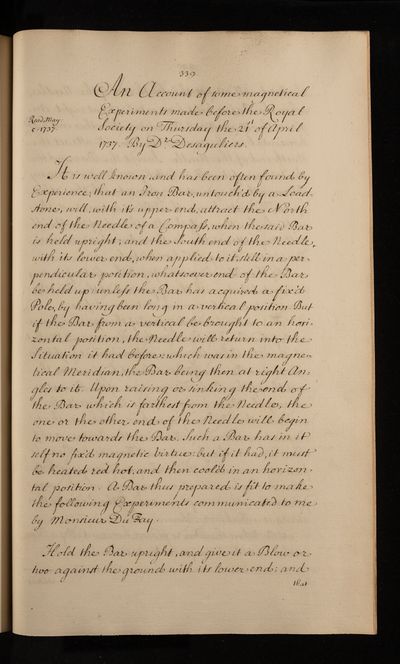 339
An Account of some magnetical
Experiments made before the Royal
Read May
1737
Society on Thursday the 21st of April
1737. By Dr. Desaguliers.
It is well known and has been often found by
Experience, that an Iron Bar, untouch'd by a Load-
stone, will, with its upper end, attract the North
end of the Needle of a Compass, when the said Bar
is held upright; and the South end of the Needle,
with its lower end, when applied to it, still in a per-
pendicular position, whatsoever end of the Bar
be held up; unless the Bar has acquired a fix'd
Pole, by having been long in a vertical position. But
if the Bar from a vertical be brought to an hori-
zontal position, the Needle will return into the
Situation it had before: which was in the magne-
tical Meridian, the Bar being then at right An-
gles to it. Upon raising or sinking the end of
the Bar which is farthest from the Needle, the
one or the other end of the Needle will begin
to move towards the Bar. Such a Bar has in it
self no fix'd magnetic virtue: but if it had, it must
be heated red hot, and then cool'd in an horizon-
tal position. A Bar thus prepared is fit to make
the following Experiments communicated to me
by Monsieur Du Fay.
Hold the Bar upright, and give it a Blow or
two against the ground with its lower end; and
that